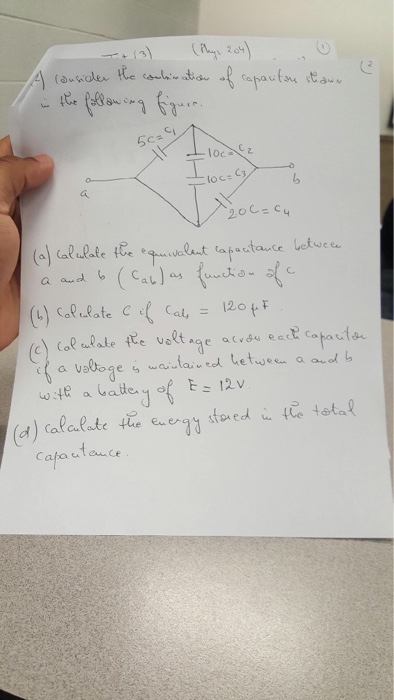 (3) (Phys 204) (1)
(2
2) Consider the combination of capacitors shown
in the following figure.
5C=C1
10C=C2
10C=C3
20C=C4
a
b
(a) Calculate the equivalent capacitance between
a and b (Cab) as function of C
(b) Calculate C if Cab = 120 µF.
(c) Calculate the voltage across each capacitor
if a voltage is maintained between a and b
with a battery of E = 12V.
(d) Calculate the energy stored in the total
capacitance.